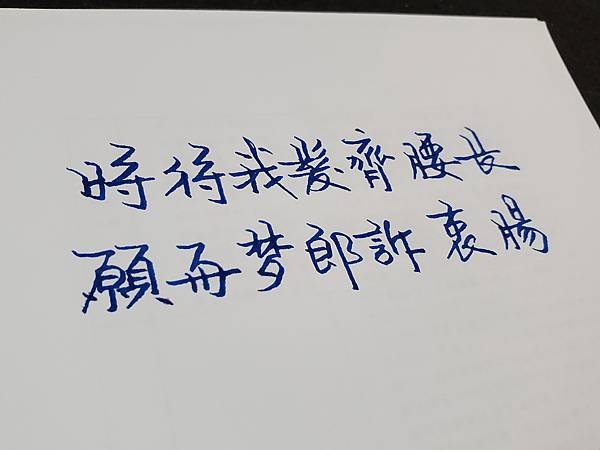 時待我髮齊腰長
願再梦郎許衷腸